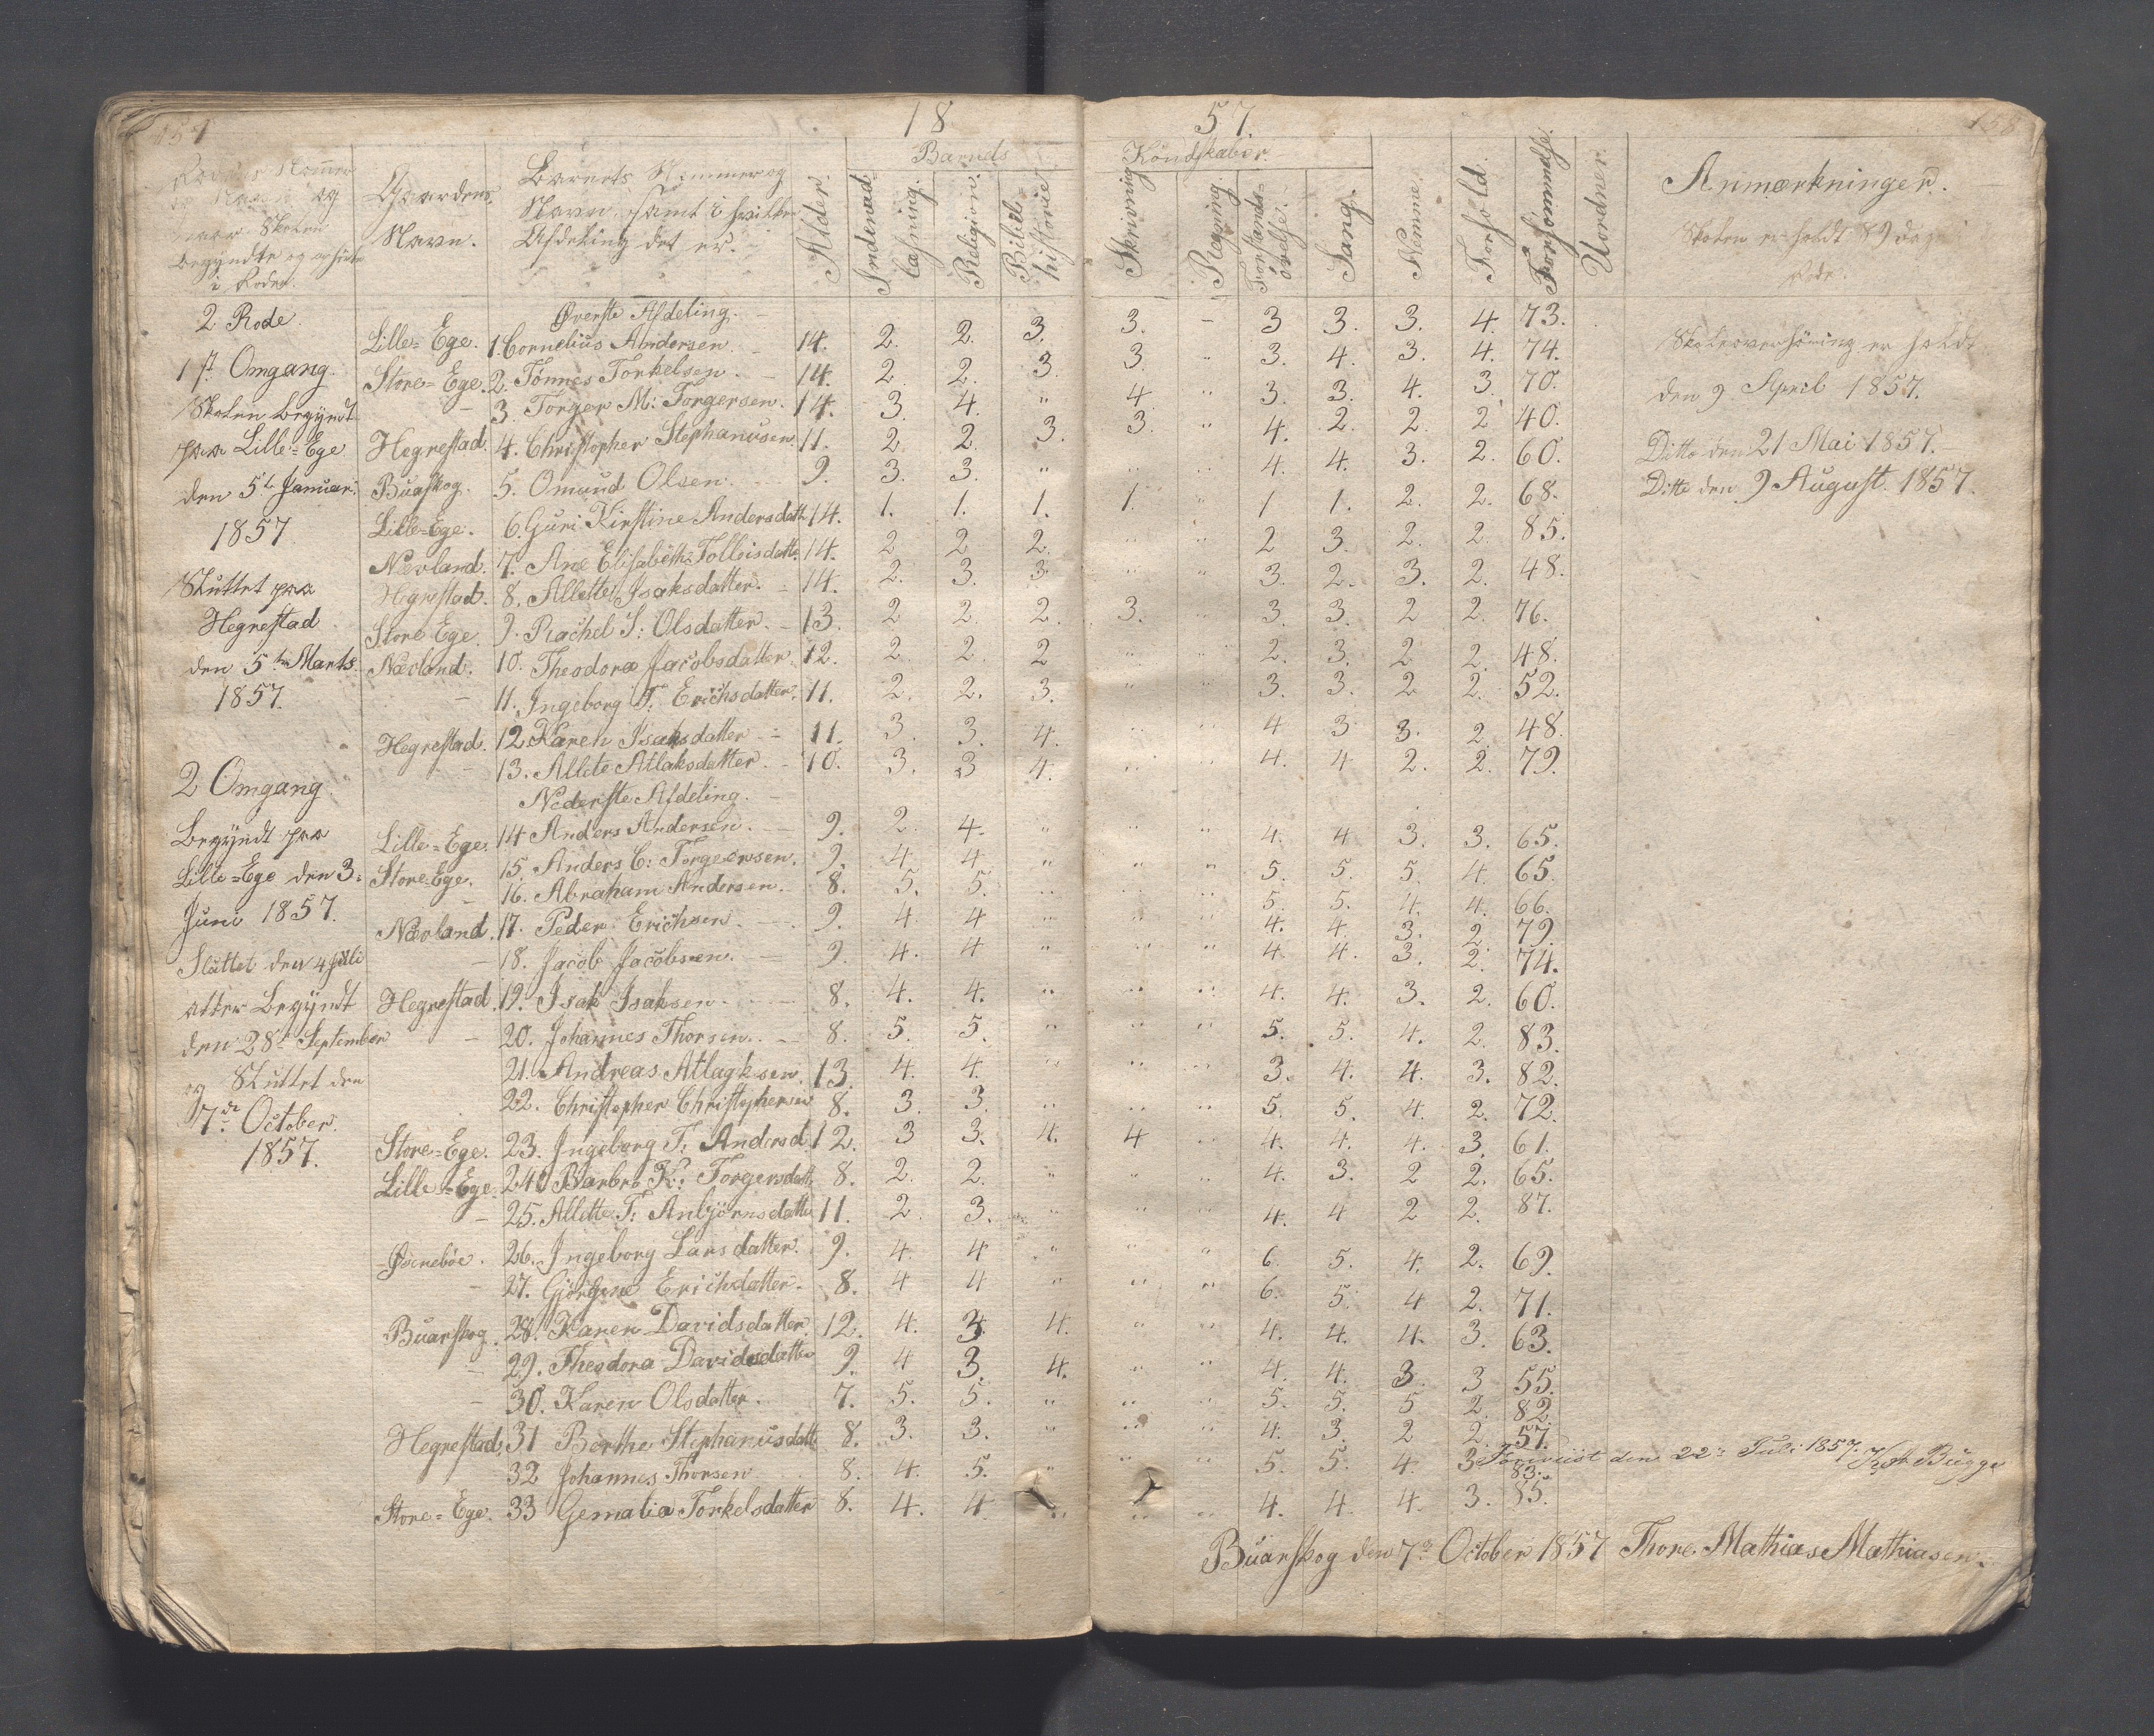 157
18
57.
158
Rodens Nommer og Navn og naar Skolen begyndte og ophørte i Roden.
Gaardens Navn.
Barnets Nummer og Navn, samt i hvilken Afdeling det er.
Alder.
Barnets
Kundskaber.
Indenad-læsning.
Religion.
Bibelhistorie
Skrivning
Regning.
Forstands-øvelse.
Sang.
Nemme.
Forhold.
Forsømmelse.
Uordner.
Anmærkninger.
Skolen er holdt 89 dag
Rode.
2 Rode.
Øverste Afdeling.
Lille-Ege. 1. Cornelius Andersen. 14. 2. 2. 3. 3. - 3 3. 3. 4. 73.
1ste Omgang.
Store-Ege. 2. Tønnes Torkelsen. 14. 2. 2. 3. 3. " 3. 4. 3. 4. 74.
Skoleoverhøring er holdt
- 3. Torger M: Torgersen. 14. 3. 4. " 4. " 3. 3. 4. 3. 70.
den 9 April 1857.
Skolen begyndt
Hegrestad. 4. Christopher Stephanusen. 11. 2 2. 3. 3. " 4. 2. 2. 2 40.
paa Lille-Ege
Ditto den 21 Mai 1857.
Buaskog. 5. Omund Olsen. 9. 3. 3. " " " 4. 4. 3. 2. 60.
den 5te Januar.
Ditto den 9 August. 1857.
Lille-Ege. 6. Guri Kirstine Andersdatt. 14. 1. 1. 1. 1. " 1 1. 2. 2. 68.
1857
Nævland. 7. Ane Elisabeth Tolleisdatte. 14. 2 2 2. " " 2 3. 2. 2. 85.
Sluttet paa
Hegrestad. 8. Allette Isaksdatter. 14. 2. 3. 3. " " 3. 2. 3. 2. 48.
Hegrestad
Store Ege 9. Rachel S: Olsdatter. 13. 2 2. 2. 3. " 3. 3. 2 2. 76.
den 5te Marts.
Nævland. 10. Theodora Jacobsdatter. 12. 2. 2. 2 " " 2. 3. 2 2. 48.
1857.
- 11. Ingeborg T: Erichsdatter. 11. 2. 2. 3. " " 3. 3. 2 2. 52.
Hegrestad. 12 Karen Isaksdatter 11. 3. 3. 4. " " 4 3 3. 2. 48.
- 13. Allete Atlaksdatter. 10. 3. 3 4. " " 4. 4 2. 2. 79.
2 Omgang
Nederste Afdeling.
begyndt paa
Lille-Ege. 14 Anders Andersen. 9. 2. 4. " " " 4. 4 3. 3. 65.
Lille-Ege den 3:
Store-Ege. 15. Anders C: Torgersen. 9. 4. 4 " " " 5. 5. 5. 4. 65.
- 16. Abraham Andersen. 8. 5. 5. " " " 5. 5. 4. 4. 66.
Juni 1857.
Nævland. 17. Peder Erichsen. 9. 4. 4 " " " 4. 4. 3. 2. 79.
Sluttet den 4 Juli
- 18. Jacob Jacobsen. 9. 4. 4 " " " 4. 4. 3. 2. 74.
atter begyndt
Hegrestad. 19. Isak Isaksen. 8. 4. 4. " " " 4. 4. 3. 2. 60.
den 28de September
- 20. Johannes Thorsen. 8. 5. 5. " " " 5. 5. 4. 2. 83.
og Sluttet den
21. Andreas Atlagksen. 13. 4. 4. " " " 3. 4. 4. 3. 82.
22. Christopher Christophersen 8. 3. 3. " " " 5. 5. 4. 2. 72.
7de October.
1857.
Store-Ege. 23. Ingeborg T: Andersd. 12. 3 3. 4. 4 " 4. 4. 4. 3. 61.
Lille-Ege. 24 Barbro K: Torgersdatt. 8. 2. 2. " " " 4. 3. 2 2. 65.
- 25. Allette T: Anbjörnsdatte 11. 2. 3. " " " 4. 4 2 2. 87.
26. Ingeborg Larsdatter. 9. 4. 4 " " " 6. 5. 4. 2. 69.
- 27. Erichsdatter. 8. 4 4 " " " 6. 5. 4 2. 71.
Buarskog. 28. Karen Davidsdatter 12. 4. 3. 4. " " 4. 4. 4. 3. 63.
- 29. Theodora Davidsdatter 9. 4 3. 4. " " 4. 4. 3. 3 55.
- 30. Karen Olsdatter. 7. 5. 5. " " " 5. 5. 5 2. 82.
Hegrestad. 31 Berthe Stephanusdatt 8. 3. 3. " " " 4. 3. 2 2 57.
32 Johannes Thorsen 8. 4. 5. " " " 5. 5. 4. 3 83.
Foreviist den 22: Juli 1857. Bugge
Store-Ege. 33 Gemalia Torkelsdatter 8. 4. 4 " " " 4. 4 4. 3. 85.
Buarskog den 7de October 1857 Thore Mathias Mathiasen.